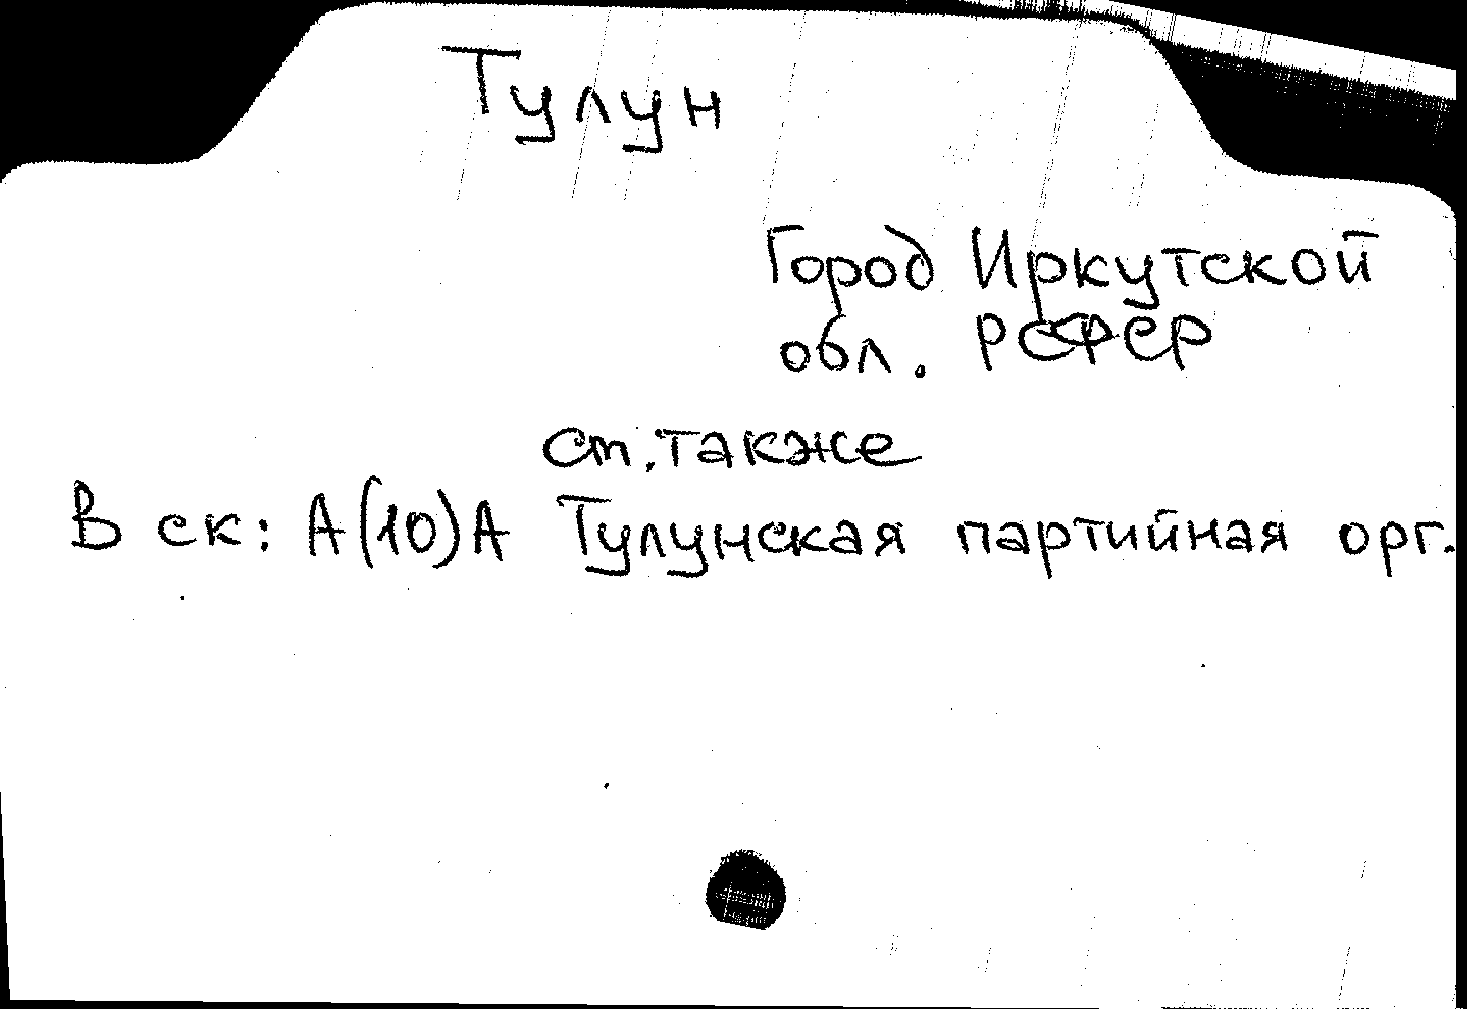 Тулун
Город Иркутской
обл. РСФСР
см. также
В ск: А(10)А Тулунская партийная орг.